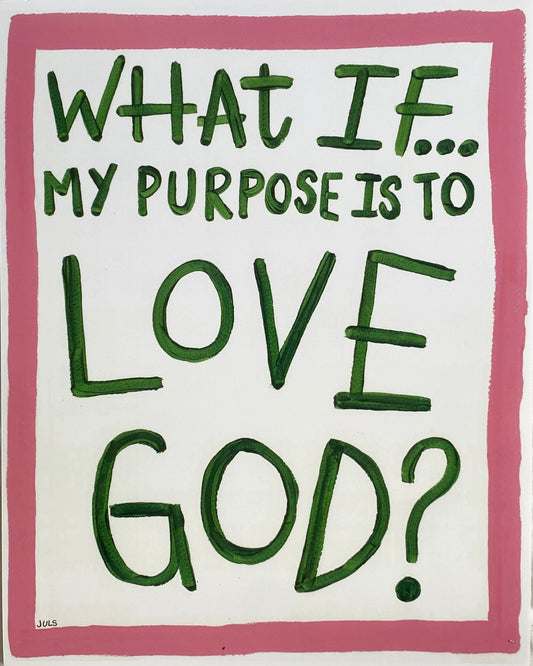 WHAt IF...
MY PURPOSE IS TO
LOVE
GOD?
JULS